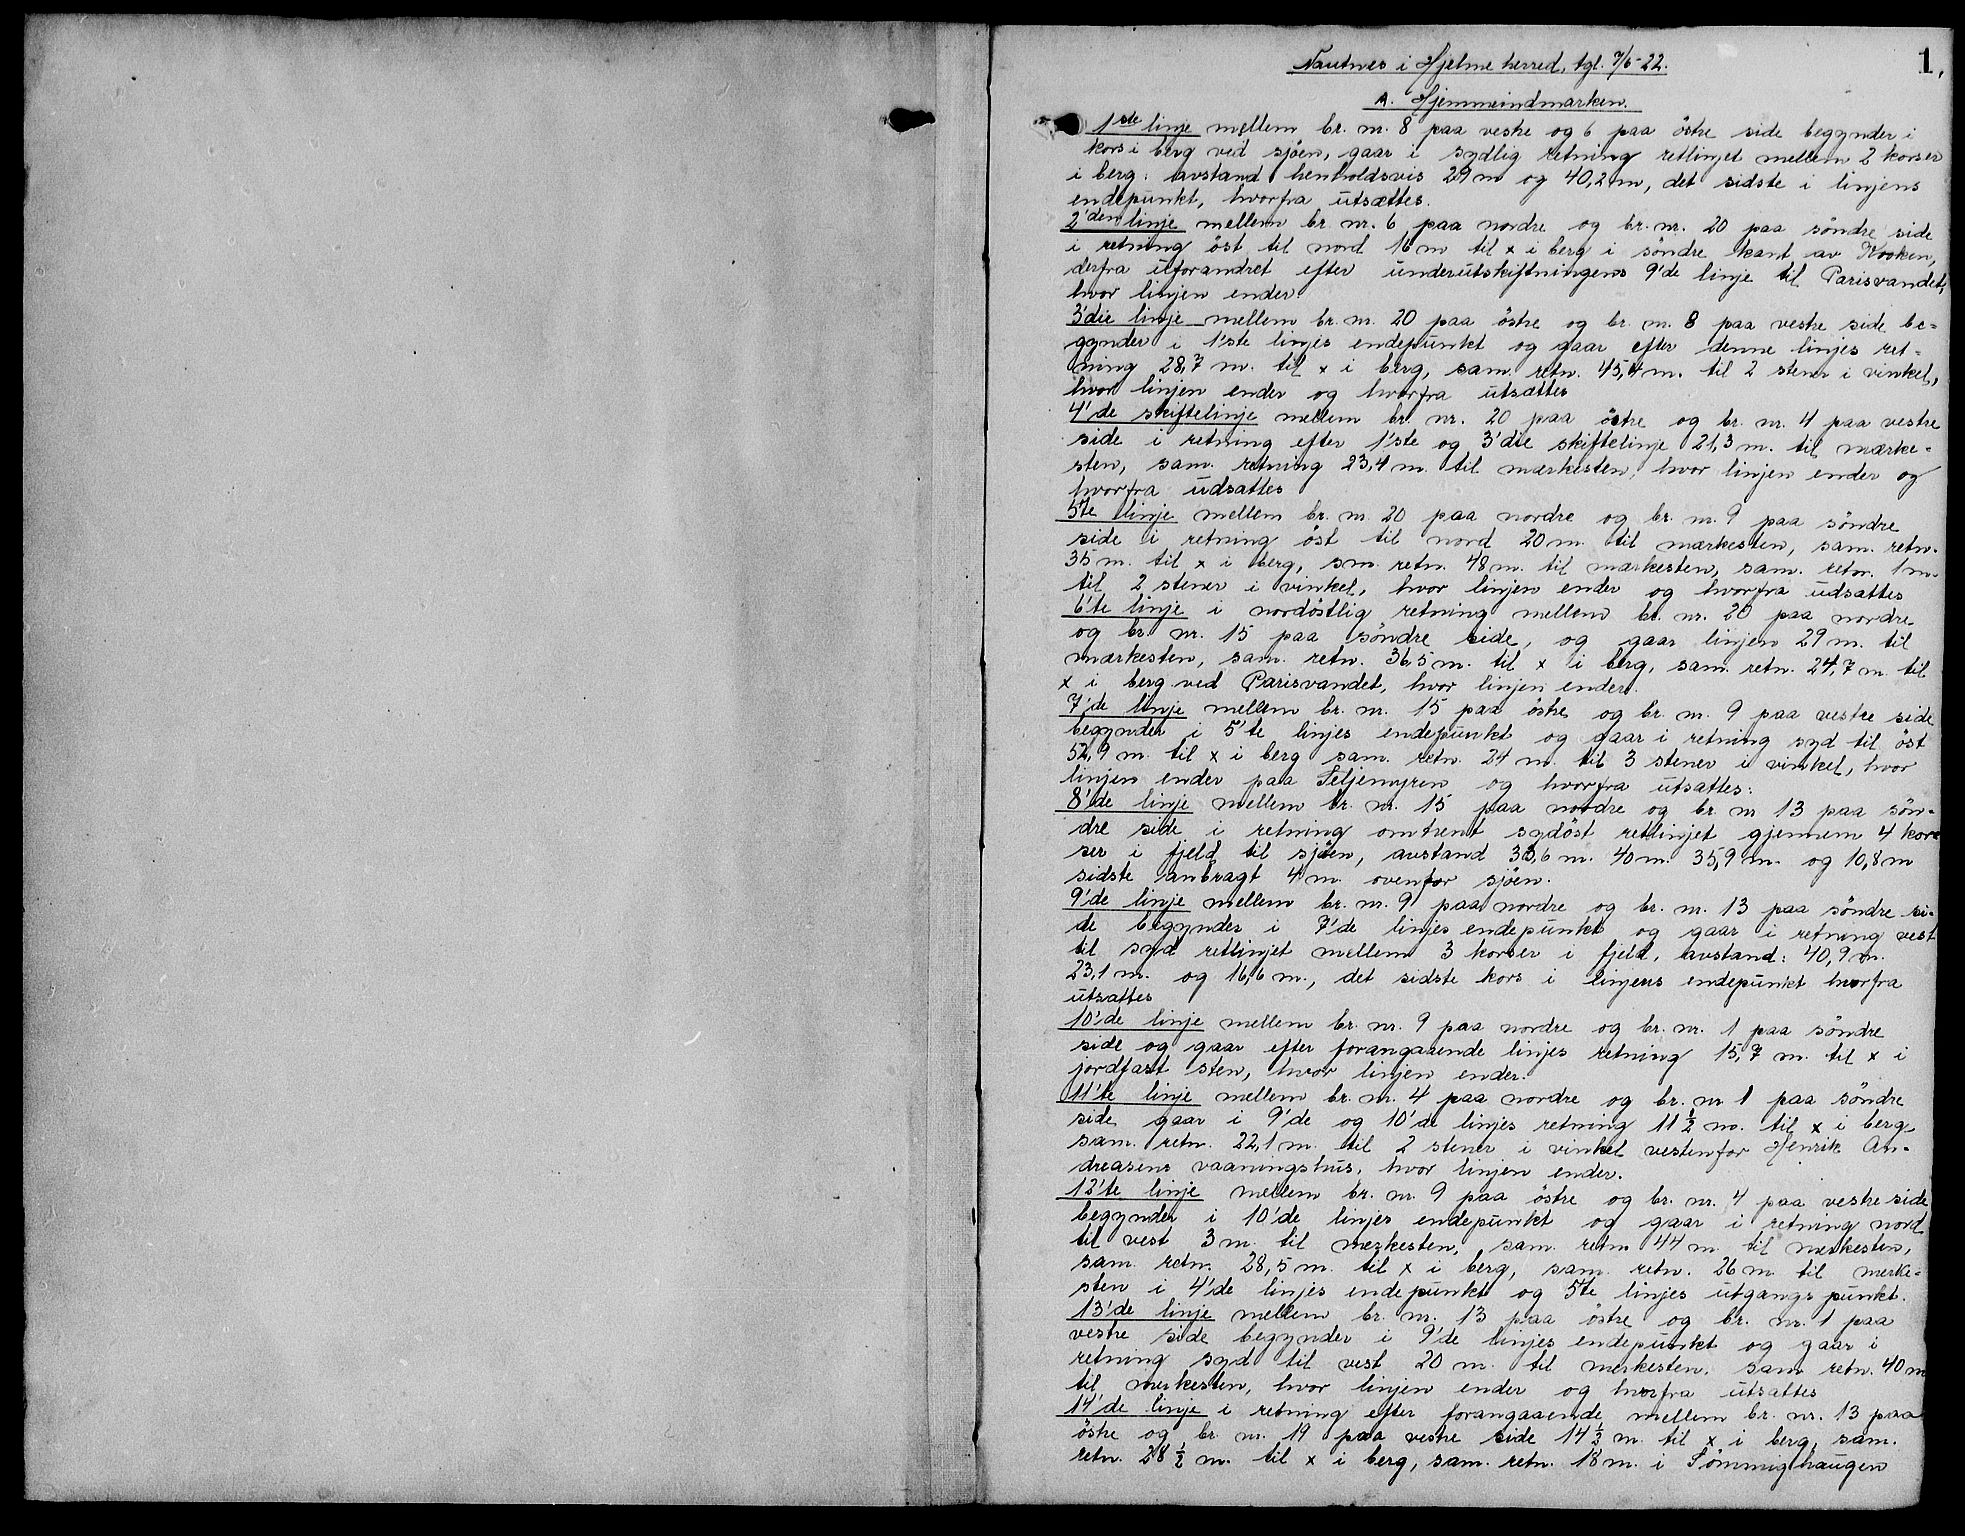 1.
Nautnes i Hjelme herred, tgl. 7/6-22.
A. Hjemmeindmarken.
1ste linje mellem br. nr. 8 paa vestre og 6 paa östre side begynder i
kors i berg ved sjöen, gaar i sydlig retning retlinjet mellem 2 korser
i berg: avstand henholdsvis 29 m og 40,2 m, det sidste i linjens
endepunkt, hvorfra utsættes.
2'den linje mellem br. nr. 6 paa nordre og br. nr. 20 paa söndre side
i retning öst til nord 16 m til x i berg i söndre kant av Kroken,
derfra uforandret efter underutskiftningens 9'de linje til Parisvandet,
hvor linjen ender.
3'die linje mellem br. nr. 20 paa östre og br. nr. 8 paa vestre side be-
gynder i 1'ste linjes endepunkt og gaar efter denne linjes ret-
ning 28,7 m. til x i berg, sam. retn. 45,4 m. til 2 stener i vinkel,
hvor linjen ender og hvorfra utsættes
4'de skiftelinje mellem br. nr. 20 paa östre og br. nr. 4 paa vestre
side i retning efter 1'ste og 3'die skiftelinje 21,3 m. til mærke-
sten, sam. retning 23,4 m. til mærkesten, hvor linjen ender og
hvorfra udsattes
5te linje mellem br. nr. 20 paa nordre og br. nr. 9 paa söndre
side i retning öst til nord 20 m. til mærkesten, sam. retn.
35 m. til x i berg, sm. retn. 48 m. til mærkesten, sam. retn. 1 m.
til 2 stener i vinkel, hvor linjen ender og hvorfra udsattes
6'te linje i nordöstlig retning mellem br. nr. 20 paa nordre
og br. nr. 15 paa söndre side, og gaar linjen 29 m. til
mærkesten, sam. retn. 36,5 m. til x i berg, sam. retn. 24,7 m. til
x i berg ved Parisvandet, hvor linjen ender.
7'de linje mellem br. nr. 15 paa östre og br. nr. 9 paa vestre side
begynder i 5'te linjes endepunkt og gaar i retning syd til öst
52,9 m. til x i berg sam. retn. 24 m. til 3 stener i vinkel, hvor
linjen ender paa Seljemyren og hvorfra utsattes:
8'de linje mellem br. nr. 15 paa nordre og br. nr 13 paa sön-
dre side i retning omtrent sydöst retlinjet gjennem 4 kor-
ser i fjeld til sjöen, avstand 33,6 m. 40 m. 35,9 m. og 10,8 m
sidste anbragt 4 m. ovenfor sjöen.
9'de linje mellem br. nr. 9 paa nordre og br. nr. 13 paa söndre si-
de begynder i 7'de linjes endepunkt og gaar i retning vest
til syd retlinjet mellem 3 korser i fjeld, avstand: 40,9 m.
23,1 m. og 16,6 m., det sidste kors i linjens endepunkt hvorfra
utsattes
10'de linje mellem br. nr. 9 paa nordre og br. nr. 1 paa söndre
side og gaar efter forangaaende linjes retning 15,7 m. til x i
jordfast sten, hvor linjen ender.
11'te linje mellem br. nr. 4 paa nordre og br. nr 1 paa söndre
side gaar i 9'de og 10'de linjes retning 11 1/2 m. til x i berg
sam. retn. 22,1 m. til 2 stener i vinkel vestenfor Henrik An-
dreasens vaaningshus, hvor linjen ender.
12'te linje mellem br. nr. 9 paa östre og br. nr. 4 paa vestre side
begynder i 10'de linjes endepunkt og gaar i retning nord
til vest 3 m. til merkesten, sam. retn. 44 m. til merkesten,
sam. retn. 28,5 m. til x i berg, sam. retn. 26 m. til merke-
sten i 4'de linjes endepunkt og 5te linjes utgangspunkt.
13'de linje mellem br. nr. 13 paa östre og br. nr. 1 paa
vestre side begynder i 9'de linjes endepunkt og gaar i
retning syd til vest 20 m. til merkesten, sam retn. 40 m
til merkesten, hvor linjen ender og hvorfra utsattes
14'de linje i retning efter forangaaende mellem br. nr. 13 paa
östre og br. nr. 19 paa vestre side 14 1/2 m. til x i berg, sam.
retn. 28 1/2 m. til x i berg, sam. retn. 18 m. i Sömmighaugen